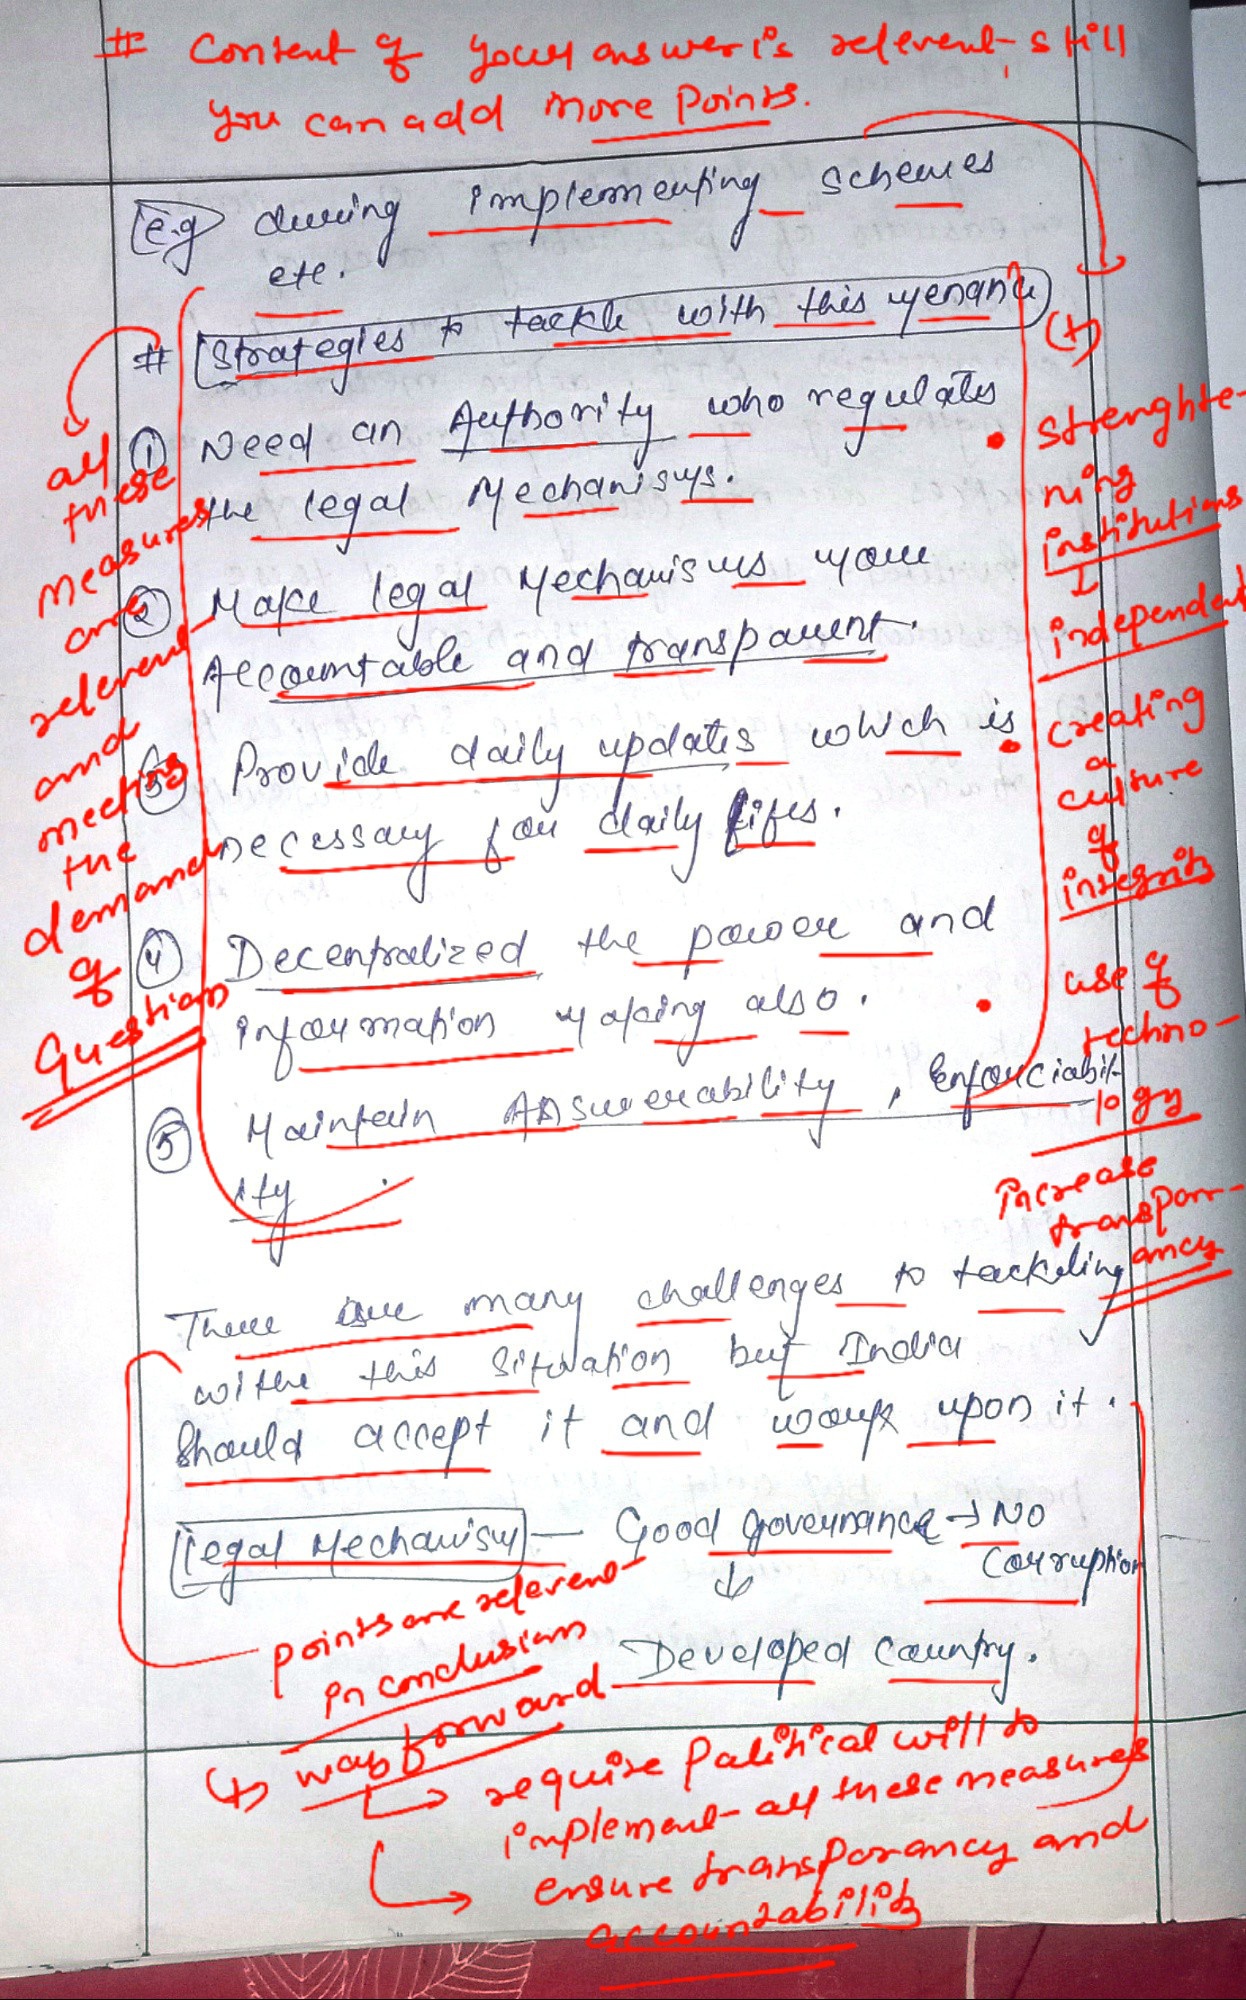 # Content of your answer is relevent, still
you can add more points.
e.g during implementing schemes
etc.
# Strategies to tackle with this menance
① Need an Authority who regulates
the legal Mechanisms.
② Make legal Mechanisms more
Accountable and transparent.
③ Provide daily updates which is
necessary for daily lifes.
④ Decentralized the power and
information making also.
⑤ Maintain Answerability, Enforciabil-
ity.
There are many challenges to tackling
withe this situation but India
should accept it and work upon it.
Legal Mechanism — Good governance → No
Corruption
↓
Developed Country.
all
these
measures
are
relevent
and
meeting
the
demand
of
Question
(+)
• strenghte-
ning
institutions
I
independent
• creating
a
culture
of
integrity
• use of
techno-
logy
increase
transpar-
ancy
points are relevent
in conclusion
↳ way forward
↳ require Political will to
implement all these measures
↳ ensure transparancy and
accountability